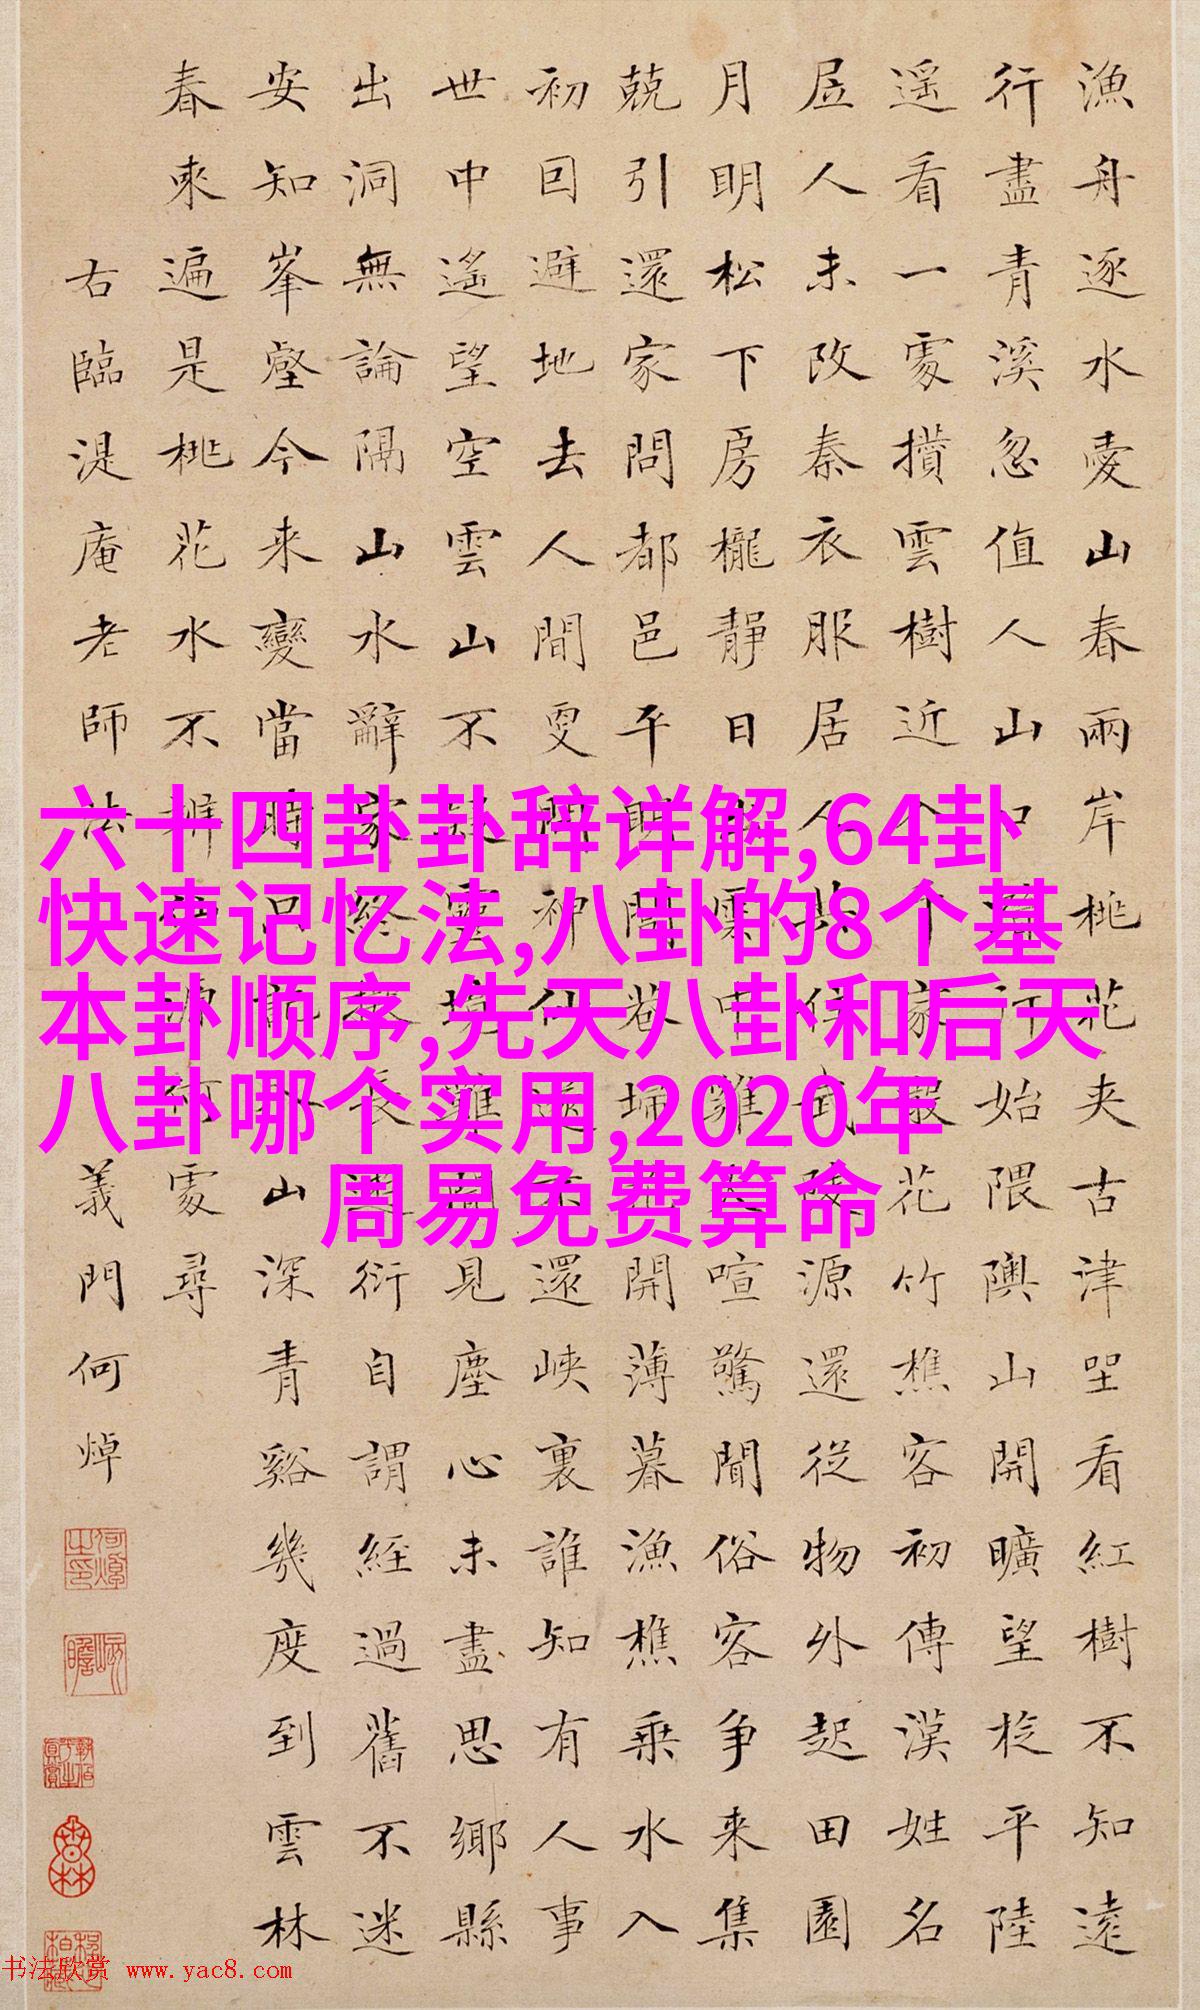 漁舟逐水愛山春兩岸桃花夾古津坐看紅樹不知遠
行盡青溪忽值人山口潛行始隈隩山開曠望旋平陸
遥看一處攢雲樹近入千家散花竹樵客初傳漢姓名
居人未改秦衣服居人共住武陵源還從物外起田園
月明松下房櫳靜日出雲中雞犬喧驚聞俗客争来集
兢引還家問都邑平明閭巷掃花開薄暮漁樵乘水入
初回避地去人間更聞神仙遂不還峽裏誰知有人事
世中遙望空雲山不疑靈境難聞見塵心未盡思鄉縣
出洞無論隔山水辭家終擬長遊衍自謂經過舊不迷
安知峯壑今来變當時只記入山深青谿幾度到雲林
春來遍是桃花水不辨仙源何處尋
右臨湜庵老師法
義門何焯
六十四卦卦辞详解,64卦
快速记忆法,八卦的8个基
本卦顺序,先天八卦和后天
八卦哪个实用,2020年
周易免费算命
书法欣赏 www.yac8.com